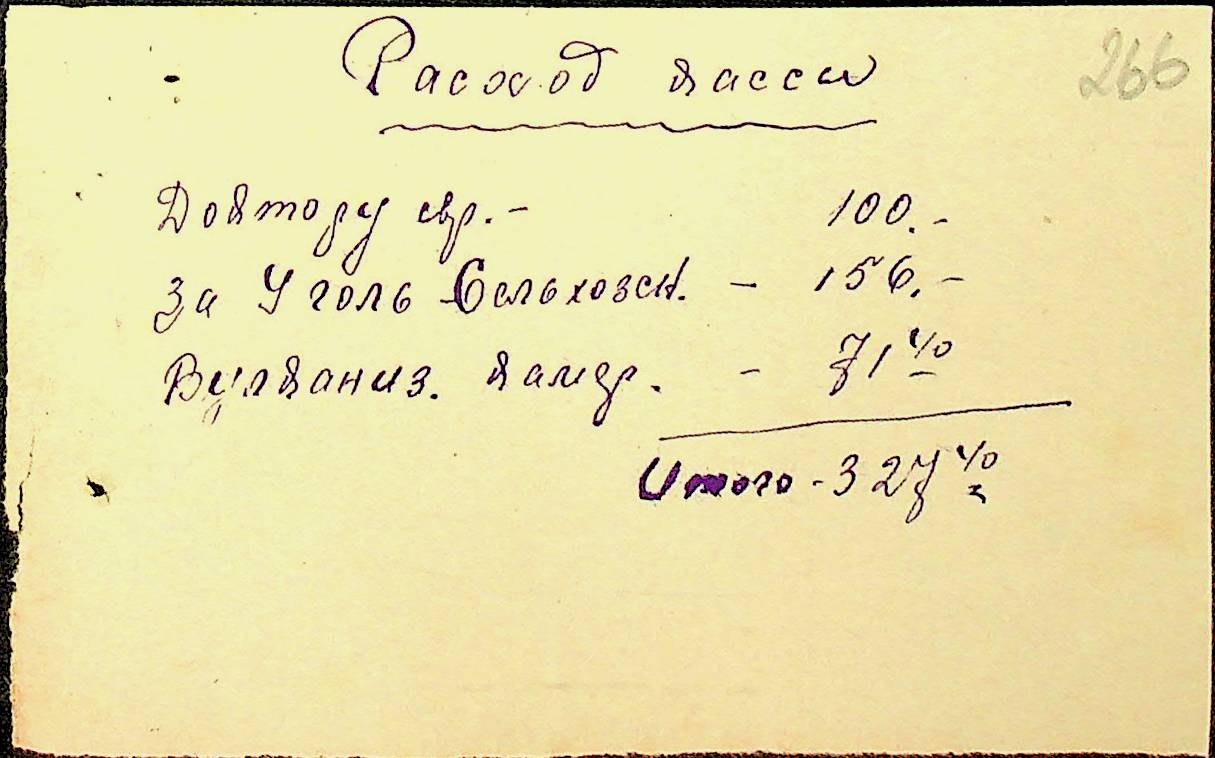 266
Расход кассы
Доктору евр. - 100.-
За Уголь Сельхозск. - 156.-
Вулканиз. камер. - 71 40
Итого - 327 40